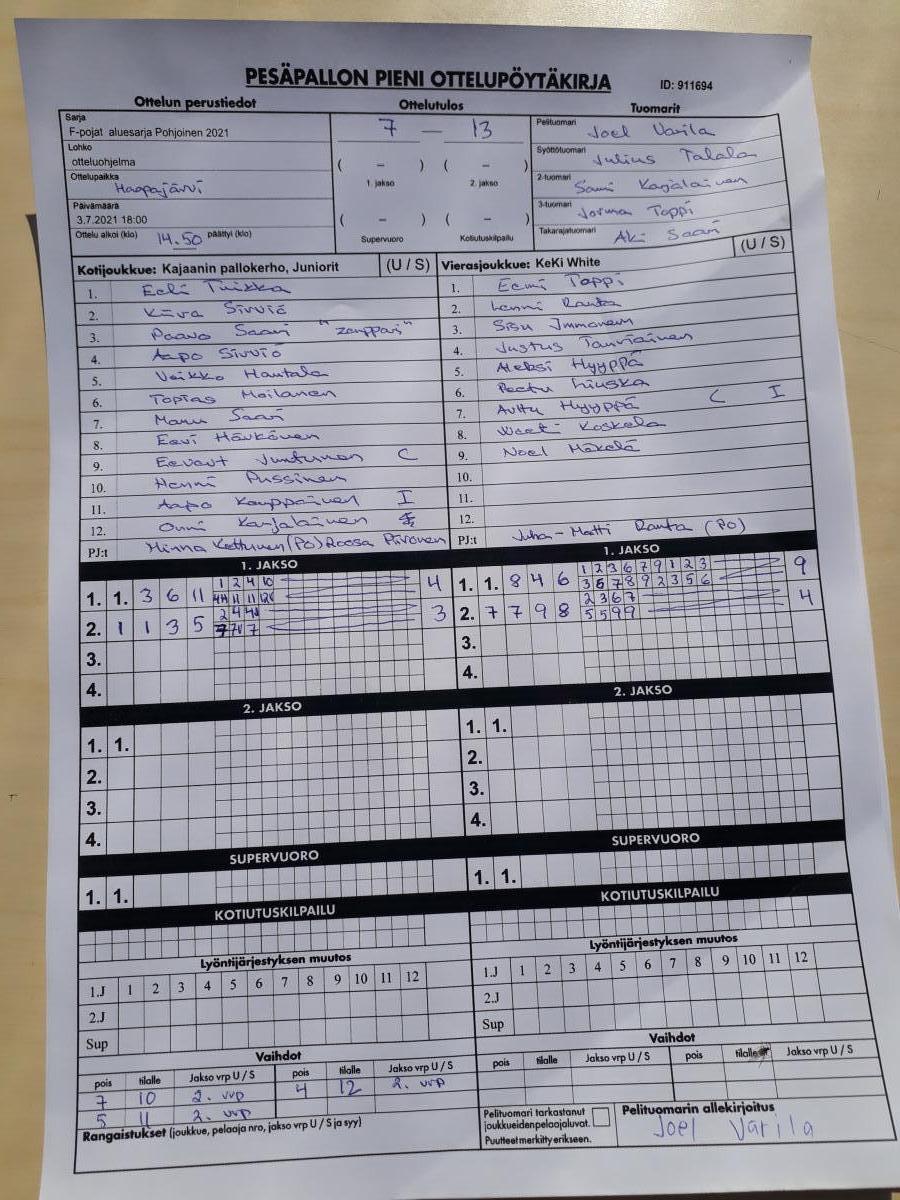 PESÄPALLON PIENI OTTELUPÖYTÄKIRJA ID: 911694
Ottelun perustiedot Ottelutulos Tuomarit
Sarja
F-pojat aluesarja Pohjoinen 2021
7 — 13
Pelituomari Joel Varila
Lohko
otteluohjelma
( – ) ( – )
1. jakso 2. jakso
Syöttötuomari Julius Talala
Ottelupaikka Haapajärvi
2-tuomari Sami Karjalainen
Päivämäärä
3.7.2021 18:00
( – ) ( – )
3-tuomari Jorma Toppi
Ottelu alkoi (klo) 14.50 päättyi (klo)
Supervuoro Kotiutuskilpailu
Takarajatuomari Aki Saari
Kotijoukkue: Kajaanin pallokerho, Juniorit (U / S)
1. Eeli Tuikka
2. Sivviö
3. Paavo Saari "zemppari"
4. Aapo Sivviö
5. Veikko Hautala
6. Topias Moilanen
7. Manu Saari
8. Eevi Hävkönen
9. Juntunen C
10. Henni Pussinen
11. Aapo Kauppainen I
12. Onni Karjalainen
PJ:t Minna Kettunen (PO) Roosa Piironen
Vierasjoukkue: KeKi White (U / S)
1. Eemi Toppi
2. Lenni Ranta
3. Sisu Immonen
4. Justus Tauriainen
5. Aleksi Hyyppä
6. Peetu Liuska
7. Auttu Hyyppä C I
8. Koskela
9. Noel Mäkelä
10.
11.
12.
PJ:t Juha-Matti Ranta (PO)
1. JAKSO
1. 1. 3 6 11 1 2 4 10 4
2. 1 1 3 5 3
3.
4.
1. JAKSO
1. 1. 8 4 6 1 2 3 6 7 9 1 2 3 9
3 6 7 8 9 2 3 5 6
2. 7 7 9 8 2 3 6 7 4
5 5 9 9
3.
4.
2. JAKSO
1. 1.
2.
3.
4.
2. JAKSO
1. 1.
2.
3.
4.
SUPERVUORO
1. 1.
SUPERVUORO
1. 1.
KOTIUTUSKILPAILU
KOTIUTUSKILPAILU
Lyöntijärjestyksen muutos
1.J 1 2 3 4 5 6 7 8 9 10 11 12
2.J
Sup
Lyöntijärjestyksen muutos
1.J 1 2 3 4 5 6 7 8 9 10 11 12
2.J
Sup
Vaihdot
pois tilalle Jakso vrp U / S pois tilalle Jakso vrp U / S
7 10 2. vvp 4 12 2. vvp
5 11 2. vvp
Vaihdot
pois tilalle Jakso vrp U / S pois tilalle Jakso vrp U / S
Rangaistukset (joukkue, pelaaja nro, jakso vrp U / S ja syy)
Pelituomari tarkastanut
joukkueiden pelaajaluvat.
Puutteet merkitty erikseen.
Pelituomarin allekirjoitus
Joel Varila